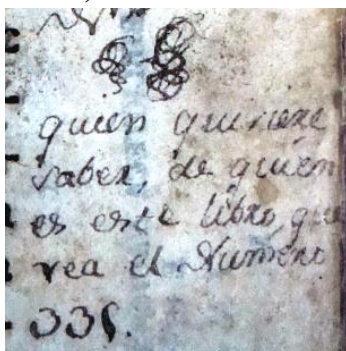 quien quisiere
saber, de quien
es este libro, que
vea el Numero
335.